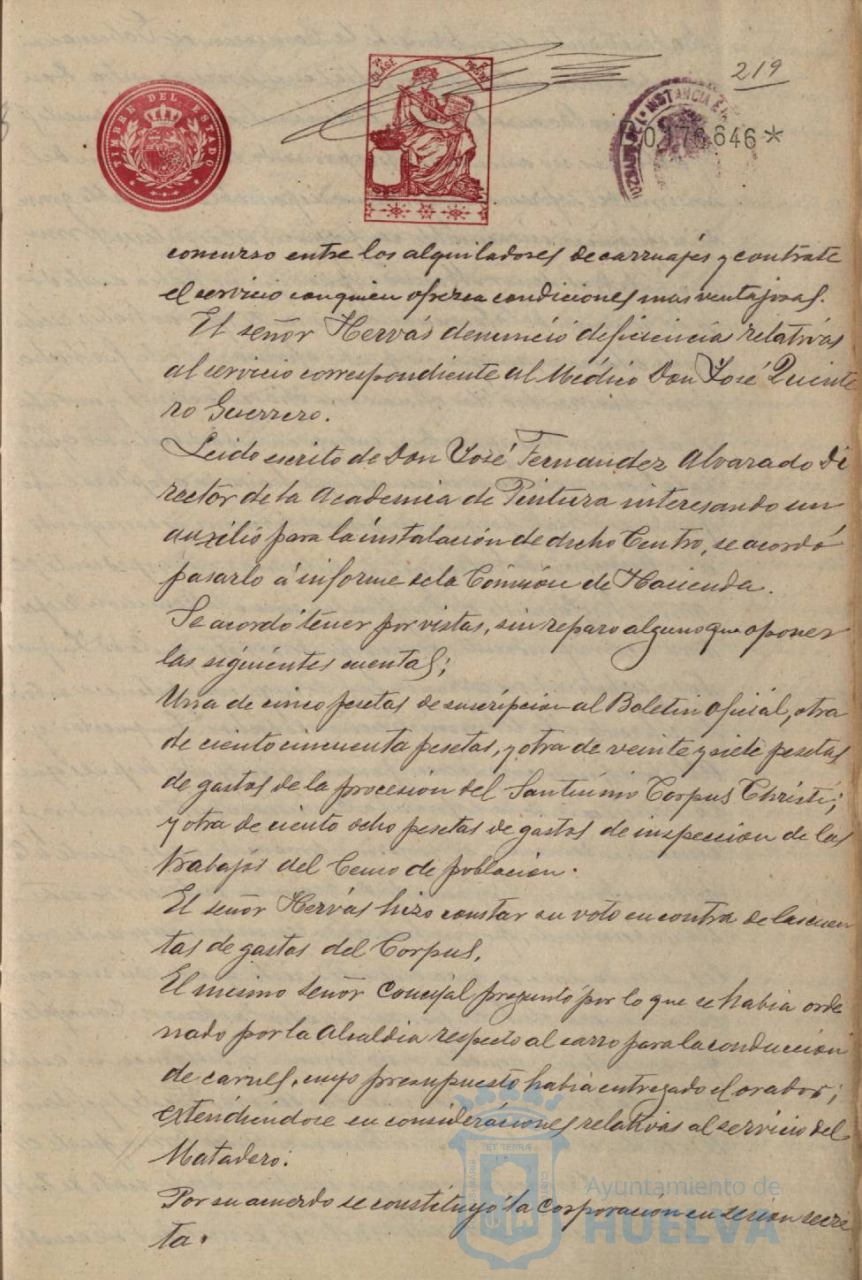 219
TIMBRE DEL ESTADO
CLASE
0.176.646*
concurso entre los alquiladores de carruajes y contrate
el servicio con quien ofrezca condiciones mas ventajosas.
El señor Hervás denunció deficiencia relativas
al servicio correspondiente al Médico Don José Quinte
ro Guerrero.
Leido escrito de Don José Fernandez Alvarado Di
rector de la Academia de Pintura interesando un
auxilio para la instalación de dicho Centro, se acordó
pasarlo á informe de la Comisión de Hacienda.
Se acordó tener por vistas, sin reparo alguno que oponer
las siguientes cuentas;
Una de cinco pesetas de suscripcion al Boletin oficial, otra
de ciento cincuenta pesetas, y otra de veinte y siete pesetas
de gastos de la procesión del Santisimo Corpus Christi;
y otra de ciento ocho pesetas de gastos de inspeccion de los
trabajos del Censo de población.
El señor Hervás hizo constar su voto en contra de las cuen
tas de gastos del Corpus.
El mismo señor Concejal preguntó por lo que se habia orde
nado por la Alcaldia respecto al carro para la conduccion
de carnes, cuyo presupuesto habia entregado el orador;
extendiendose en consideraciones relativas al servicio del
Matadero.
Por su acuerdo se constituyó la corporación en sesion secre
ta.
Ayuntamiento de
HUELVA